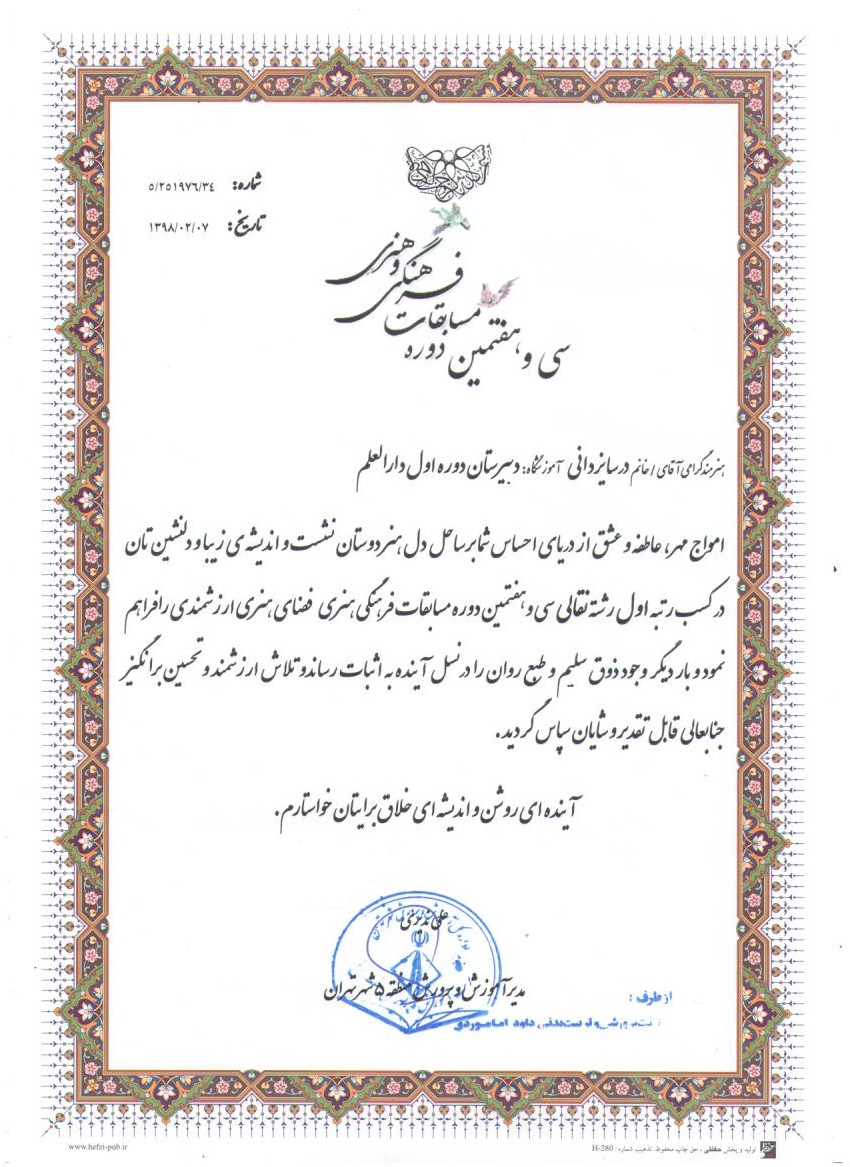 شماره: ۵/۲۵۱۹۷۶/۳۴
تاریخ: ۱۳۹۸/۰۲/۰۷
سی و هفتمین دوره
مسابقات
فرهنگی
و هنری
هنرمند گرامی آقای / خانم درسا یزدانی آموزشگاه: دبیرستان دوره اول دارالعلم
امواج مهر، عاطفه و عشق از دریای احساس شما بر ساحل دل هنردوستان نشست و اندیشه ی زیبا و دلنشین تان
در کسب رتبه اول رشته نقالی سی و هفتمین دوره مسابقات فرهنگی هنری فضای هنری ارزشمندی را فراهم
نمود و بار دیگر وجود ذوق سلیم و طبع روان را در نسل آینده به اثبات رساند و تلاش ارزشمند و تحسین برانگیز
جنابعالی قابل تقدیر و شایان سپاس گردید.
آینده ای روشن و اندیشه ای خلاق برایتان خواستارم.
علی
مدیر آموزش و پرورش منطقه ۵ شهر تهران
از طرف :
داود امام‌وردی
www.hefzi-pub.ir
تولید و پخش حفظی ، حق چاپ محفوظ. تذهیب شماره : H-280